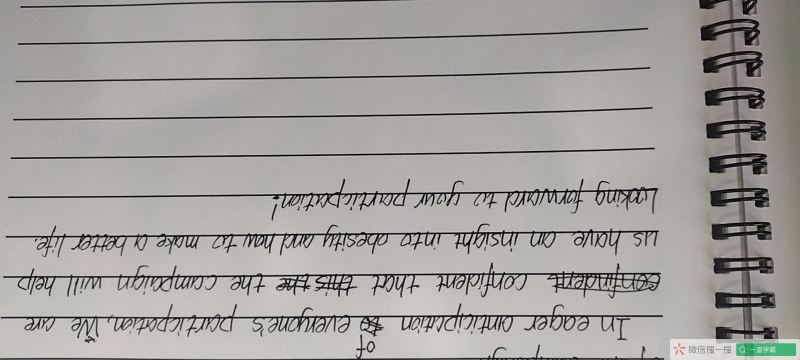 In eager anticipation of everyone's participation, We are
confident that the campaign will help
us have an insight into obesity and how to make a better life.
Looking forward to your participation!
微信搜一搜
一直学霸